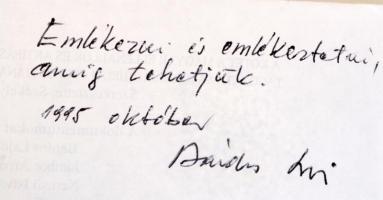 Emlékezni és emlékeztetni,
amíg tehetjük.
1995 október